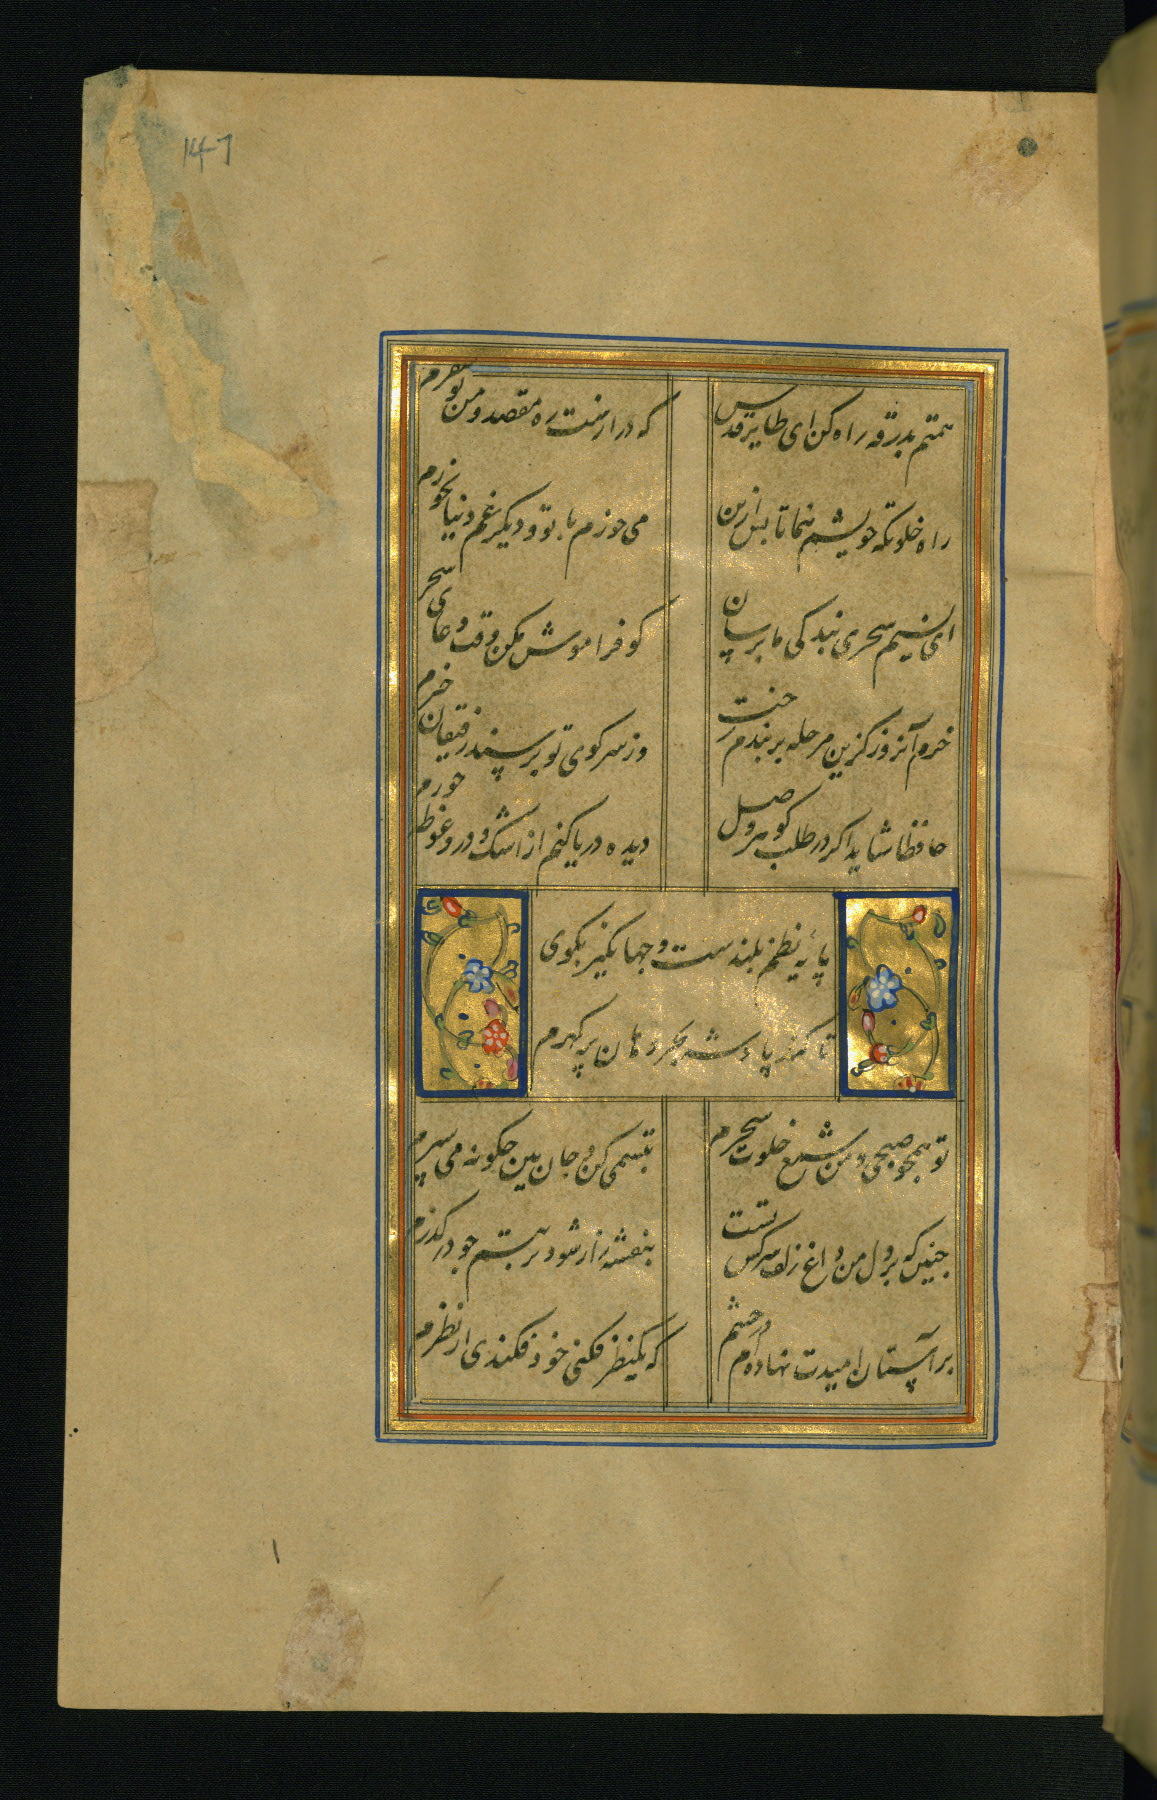 147
همتم بدرقه راه کن ای طایر قدس
که درازست ره مقصد و من نوسفرم
راه خلوتگه خویشم بنما تا پس ازین
می خورم با تو و دیگر غم دنیا نخورم
ای نسیم سحری بندگی ما برسان
گو فراموش مکن وقت دعای سحرم
خرم آنروز کزین مرحله بر بندم رخت
وز سر کوی تو پرسند رفیقان خبرم
حافظا شاید اگر در طلب گوهر وصل
دیده دریا کنم از اشک و درو غوطه خورم
پایه نظم بلندست و جهانگیر بگوی
تا کند پادشه بحر دهان پر گهرم
تو همچو صبحی و من شمع خلوت سحرم
تبسمی کن و جان بین چگونه می سپرم
چنین که بر دل من داغ زلف سرکش تست
بنفشه زار شود تربتم چو در گذرم
بر آستان امیدت نهاده ام در چشم
که یکنظر فکنی خود فکندی از نظرم